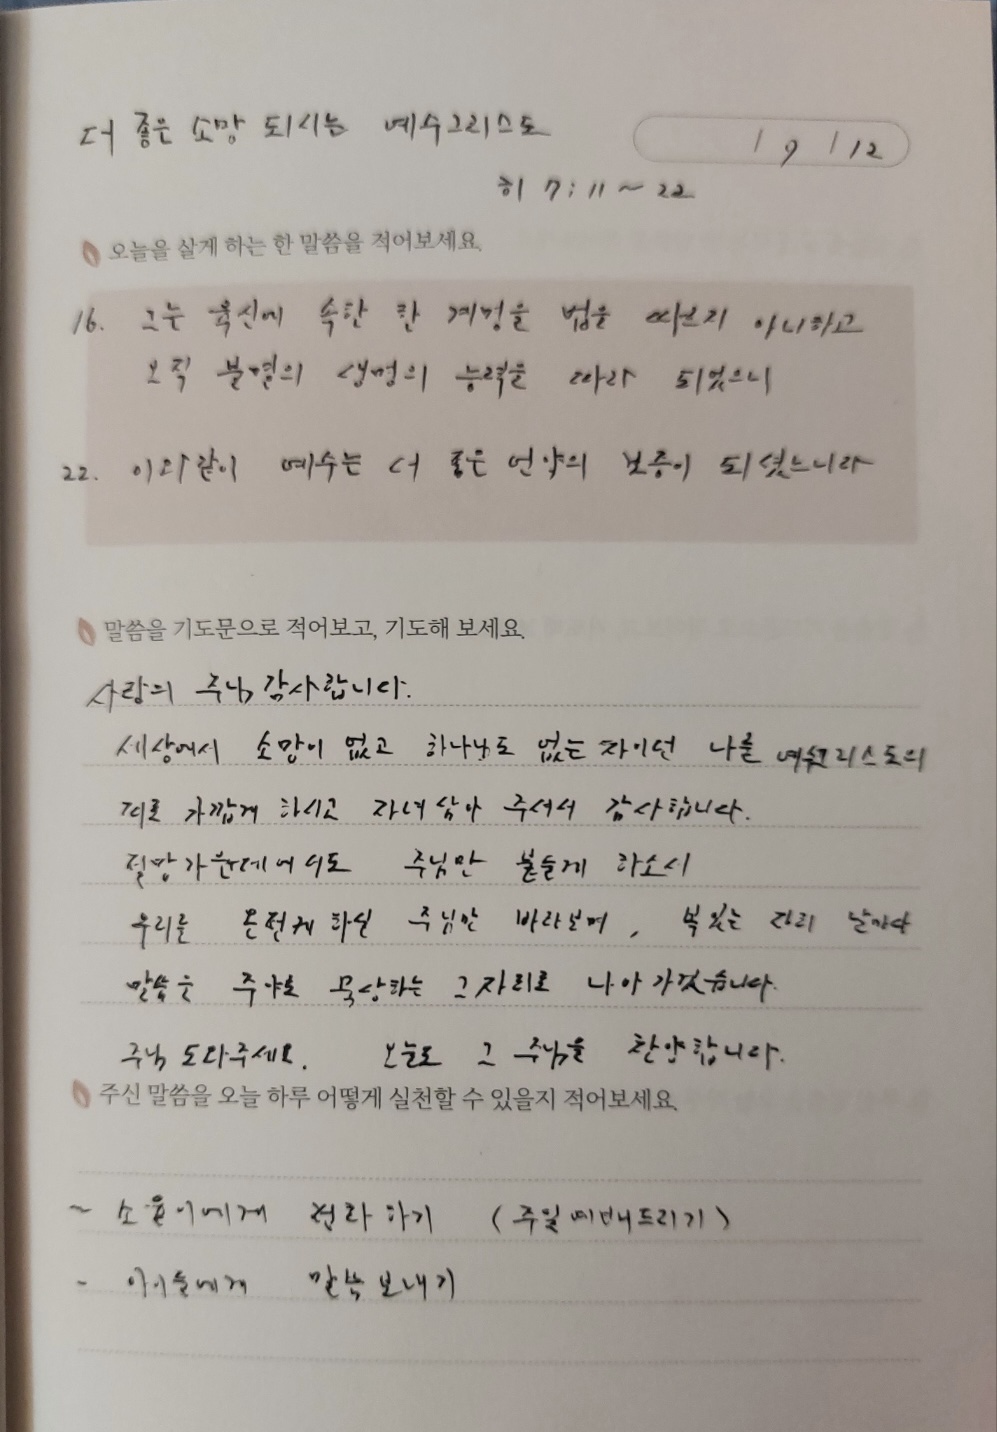 더 좋은 소망 되시는 예수그리스도
/ 9 / 12
히 7:11~22
오늘을 살게 하는 한 말씀을 적어보세요.
16. 그는 육신에 속한 한 계명을 법을 따르지 아니하고
오직 불멸의 생명의 능력을 따라 되었으니
22. 이와같이 예수는 더 좋은 언약의 보증이 되셨느니라
말씀을 기도문으로 적어보고, 기도해 보세요.
사랑의 주님 감사합니다.
세상에서 소망이 없고 하나님도 없는 자이던 나를 예수그리스도의
피로 가깝게 하시고 자녀삼아 주셔서 감사합니다.
절망가운데에서도 주님만 붙들게 하소서
우리를 온전케하실 주님만 바라보며, 복있는 날마다
말씀을 주야로 묵상하는 그자리로 나아가겠습니다.
주님 도와주세요. 오늘도 그 주님을 찬양합니다.
주신 말씀을 오늘 하루 어떻게 실천할 수 있을지 적어보세요.
~ 에게 전화하기 (주일예배드리기)
- 아이들에게 말씀보내기